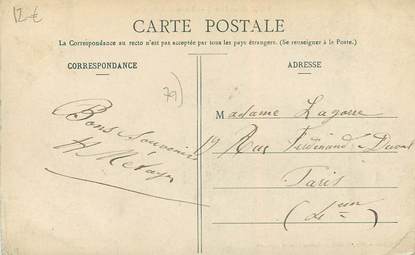 12 €
CARTE POSTALE
La Correspondance au recto n'est pas acceptée par tous les pays étrangers. (Se renseigner à la Poste.)
CORRESPONDANCE
ADRESSE
79)
Bons Souvenirs
H Métayer
Madame Lagorre
19 Rue Ferdinand Duval
Paris
(4ein)